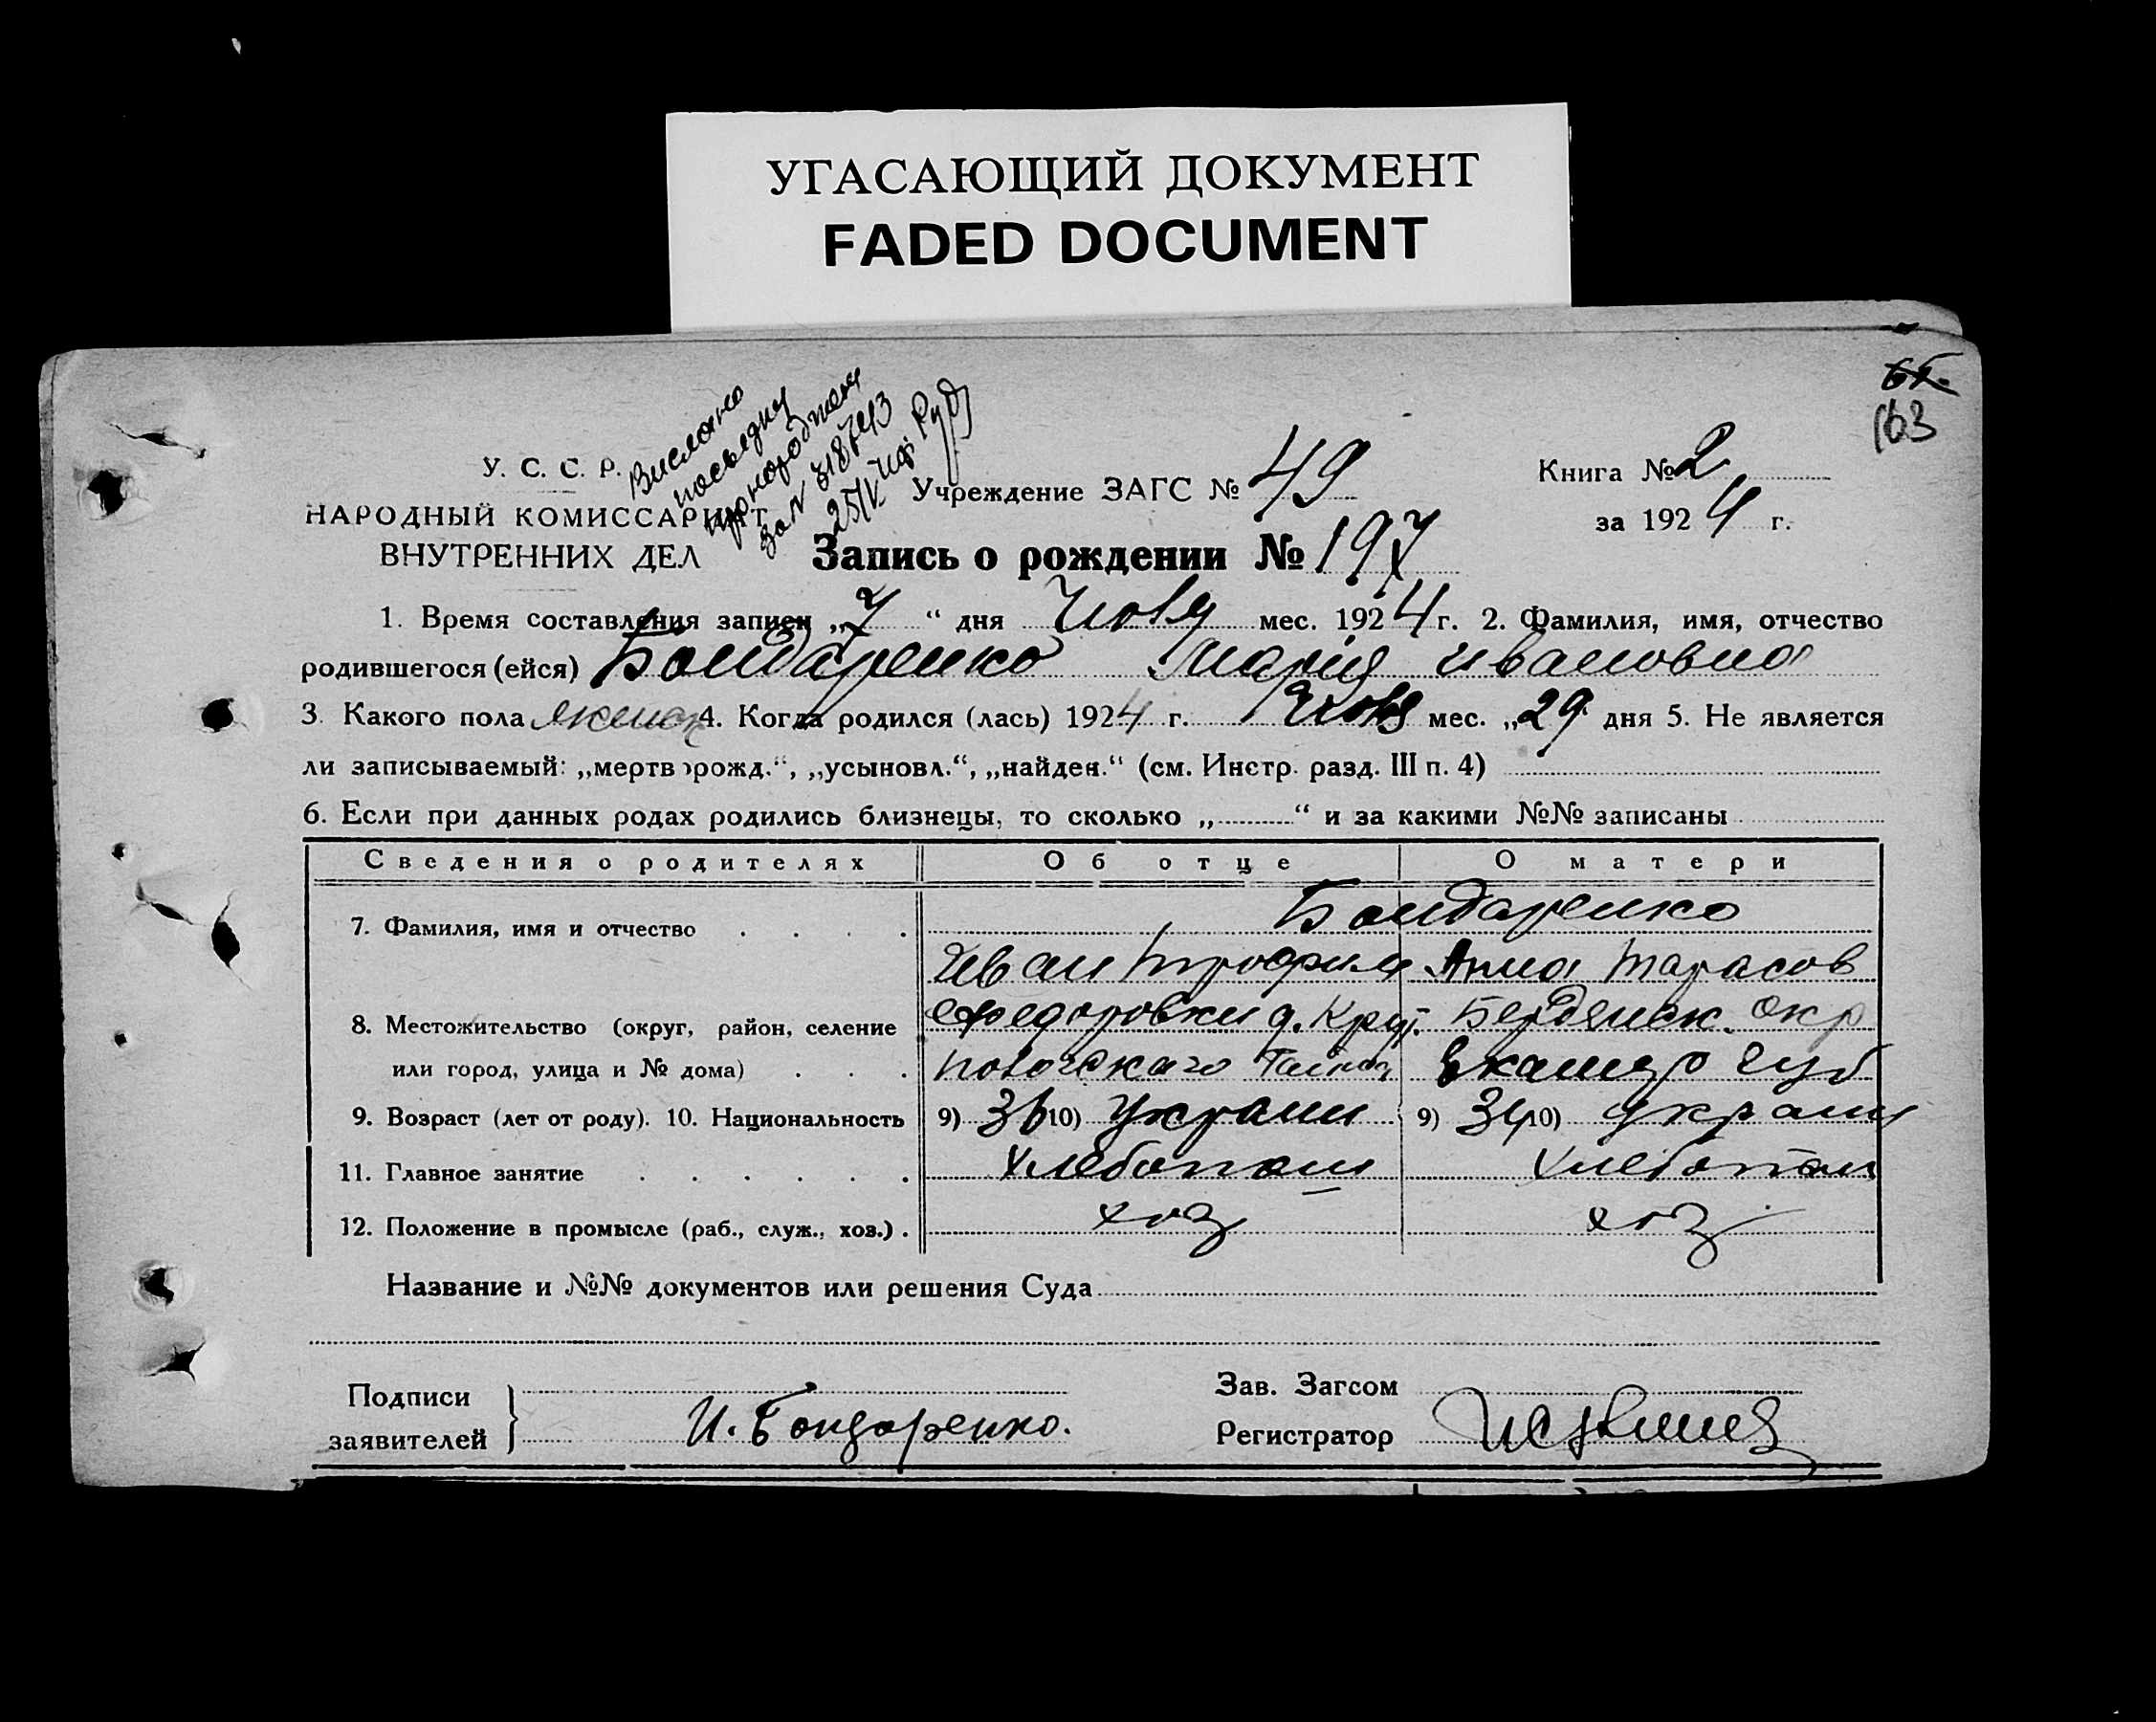 УГАСАЮЩИЙ ДОКУМЕНТ
FADED DOCUMENT
163
Выслано
за № 318743
У. С. С. Р.
НАРОДНЫЙ КОМИССАРИАТ
ВНУТРЕННИХ ДЕЛ
Учреждение ЗАГС № 49
Книга № 2
за 1924 г.
Запись о рождении № 197
1. Время составления записи „7“ дня Июля мес. 1924 г. 2. Фамилия, имя, отчество
родившегося (ейся) Бондаренко Мария Ивановна
3. Какого пола женск 4. Когда родился (лась) 1924 г. мес. „29 дня 5. Не является
ли записываемый: „мертворожд.“, „усыновл.“, „найден.“ (см. Инстр. разд. III п. 4)
6. Если при данных родах родились близнецы, то сколько „ “ и за какими №№ записаны
Сведения о родителях Об отце О матери
7. Фамилия, имя и отчество Бондаренко
Иван Трофим Анна Тарасов
8. Местожительство (округ, район, селение Федоровки Бердянск. Окр
или город, улица и № дома) Екатер Губ
9. Возраст (лет от роду). 10. Национальность 9) 36 10) Украин 9) 34 10) украин
11. Главное занятие Хлебопаш Хлебопаш
12. Положение в промысле (раб., служ., хоз.) хоз хоз
Название и №№ документов или решения Суда
Подписи
заявителей И. Бондаренко.
Зав. Загсом
Регистратор